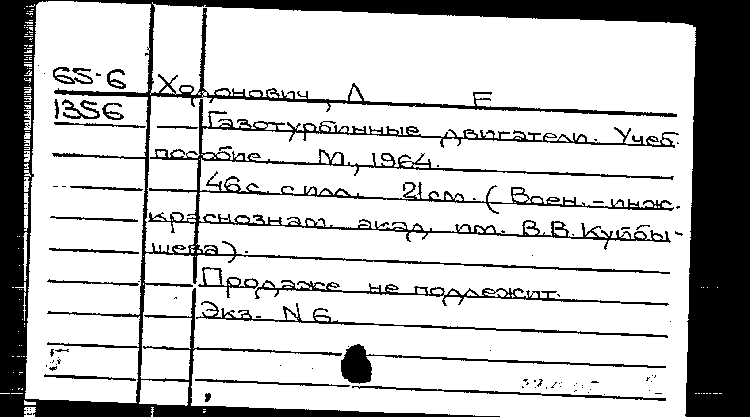 65-6 Ходонович, Л Е
1356 Газотурбинные двигатели. Учеб.
пособие. М., 1964.
46 с. с илл. 21 см. (Воен.-инж.
краснознам. акад. им. В.В. Куйбы-
шева).
Продаже не подлежит.
Экз. N 6.
Б